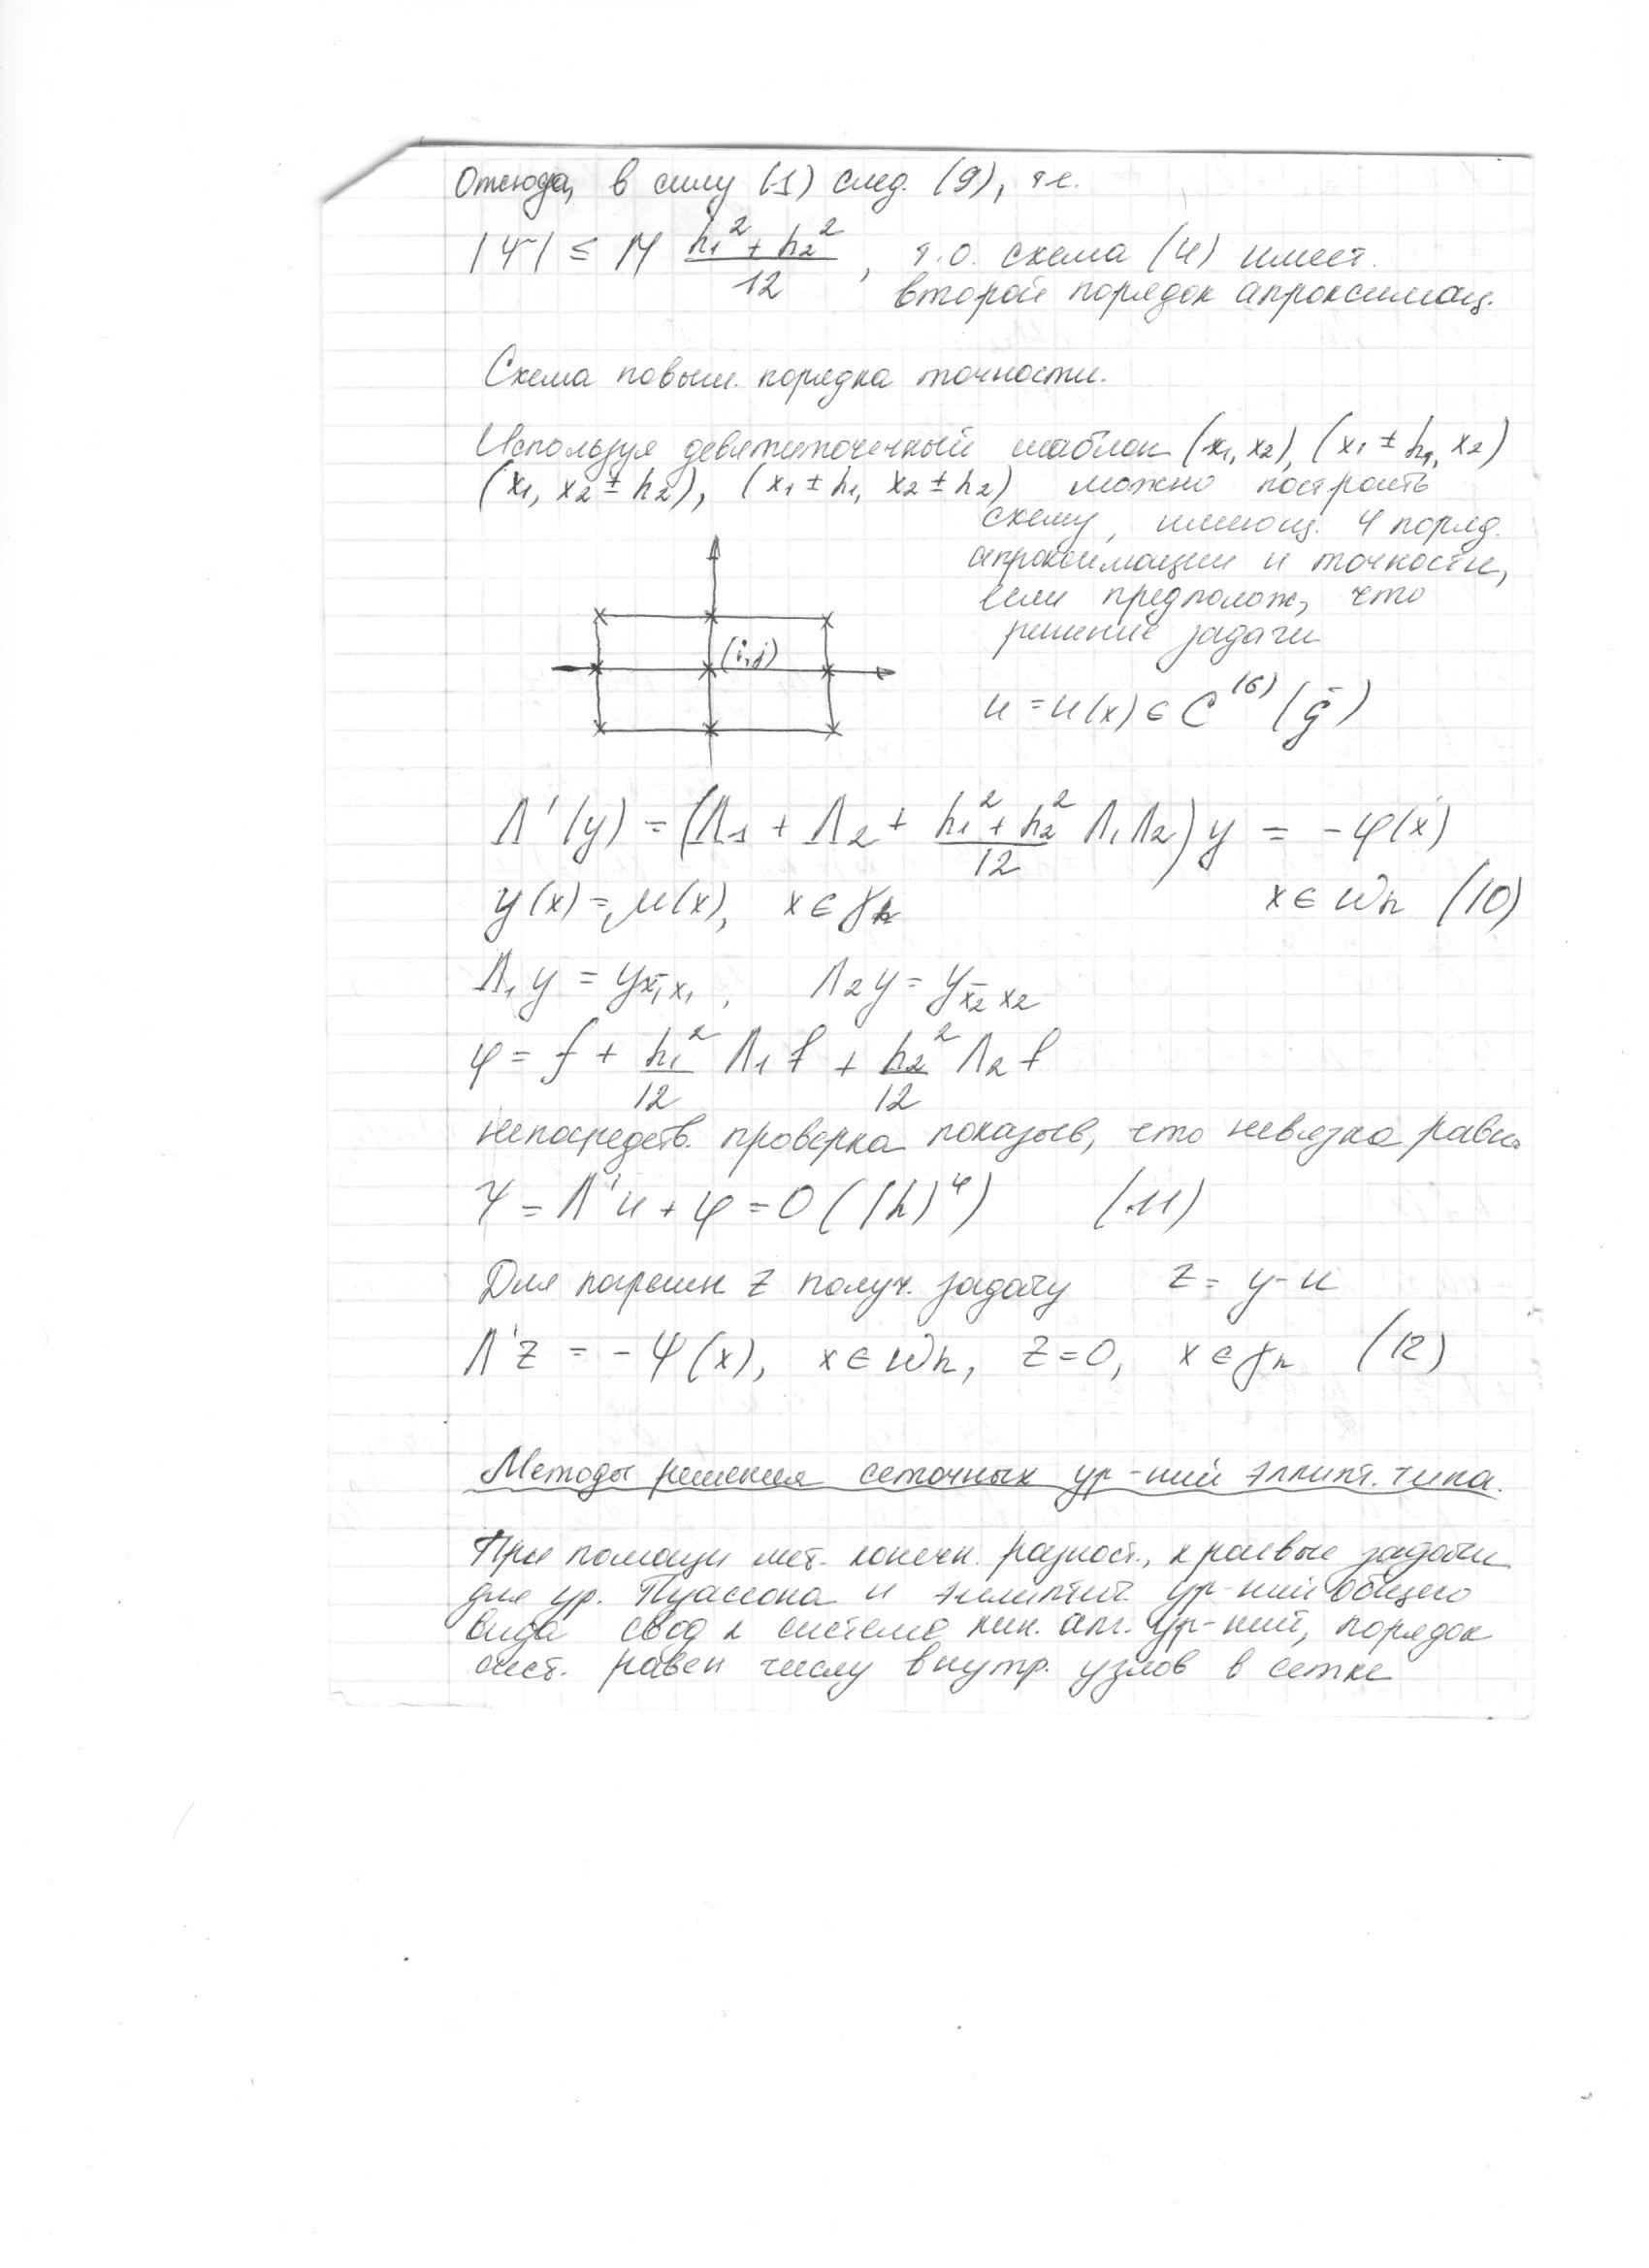 Отсюда, в силу (1) след. (9), т.е.
|Ψ| ≤ M (h₁² + h₂²)/12, т.о. схема (4) имеет.
второй порядок апроксимац.
Схема повыш. порядка точности.
Используя девятиточечный шаблон (x₁, x₂), (x₁ ± h₁, x₂)
(x₁, x₂ ± h₂), (x₁ ± h₁, x₂ ± h₂) можно построить
схему, имеющ. 4 поряд.
апроксимации и точности,
если предполож, что
решение задачи
(i,j)
u = u(x) ∈ C⁽⁶⁾(ḡ)
Λ'(y) = (Λ₁ + Λ₂ + (h₁² + h₂²)/12 Λ₁Λ₂) y = -φ(x)
y(x) = μ(x), x ∈ γh x ∈ ωh (10)
Λ₁y = y x̄₁x₁, Λ₂y = y x̄₂x₂
φ = f + h₁²/12 Λ₁f + h₂²/12 Λ₂f
непосредств. проверка показыв, что невязка равна
Ψ = Λ'u + φ = O(|h|⁴) (11)
Для погрешн z получ. задачу z = y - u
Λ'z = -Ψ(x), x ∈ ωh, z = 0, x ∈ γh (12)
Методы решения сеточных ур-ний эллипт. типа.
При помощи мет. конечн. разност., краевые задачи
для ур. Пуассона и эллиптич. ур-ний общего
вида свод к системе лин. алг. ур-ний, порядок
сист. равен числу внутр. узлов в сетке